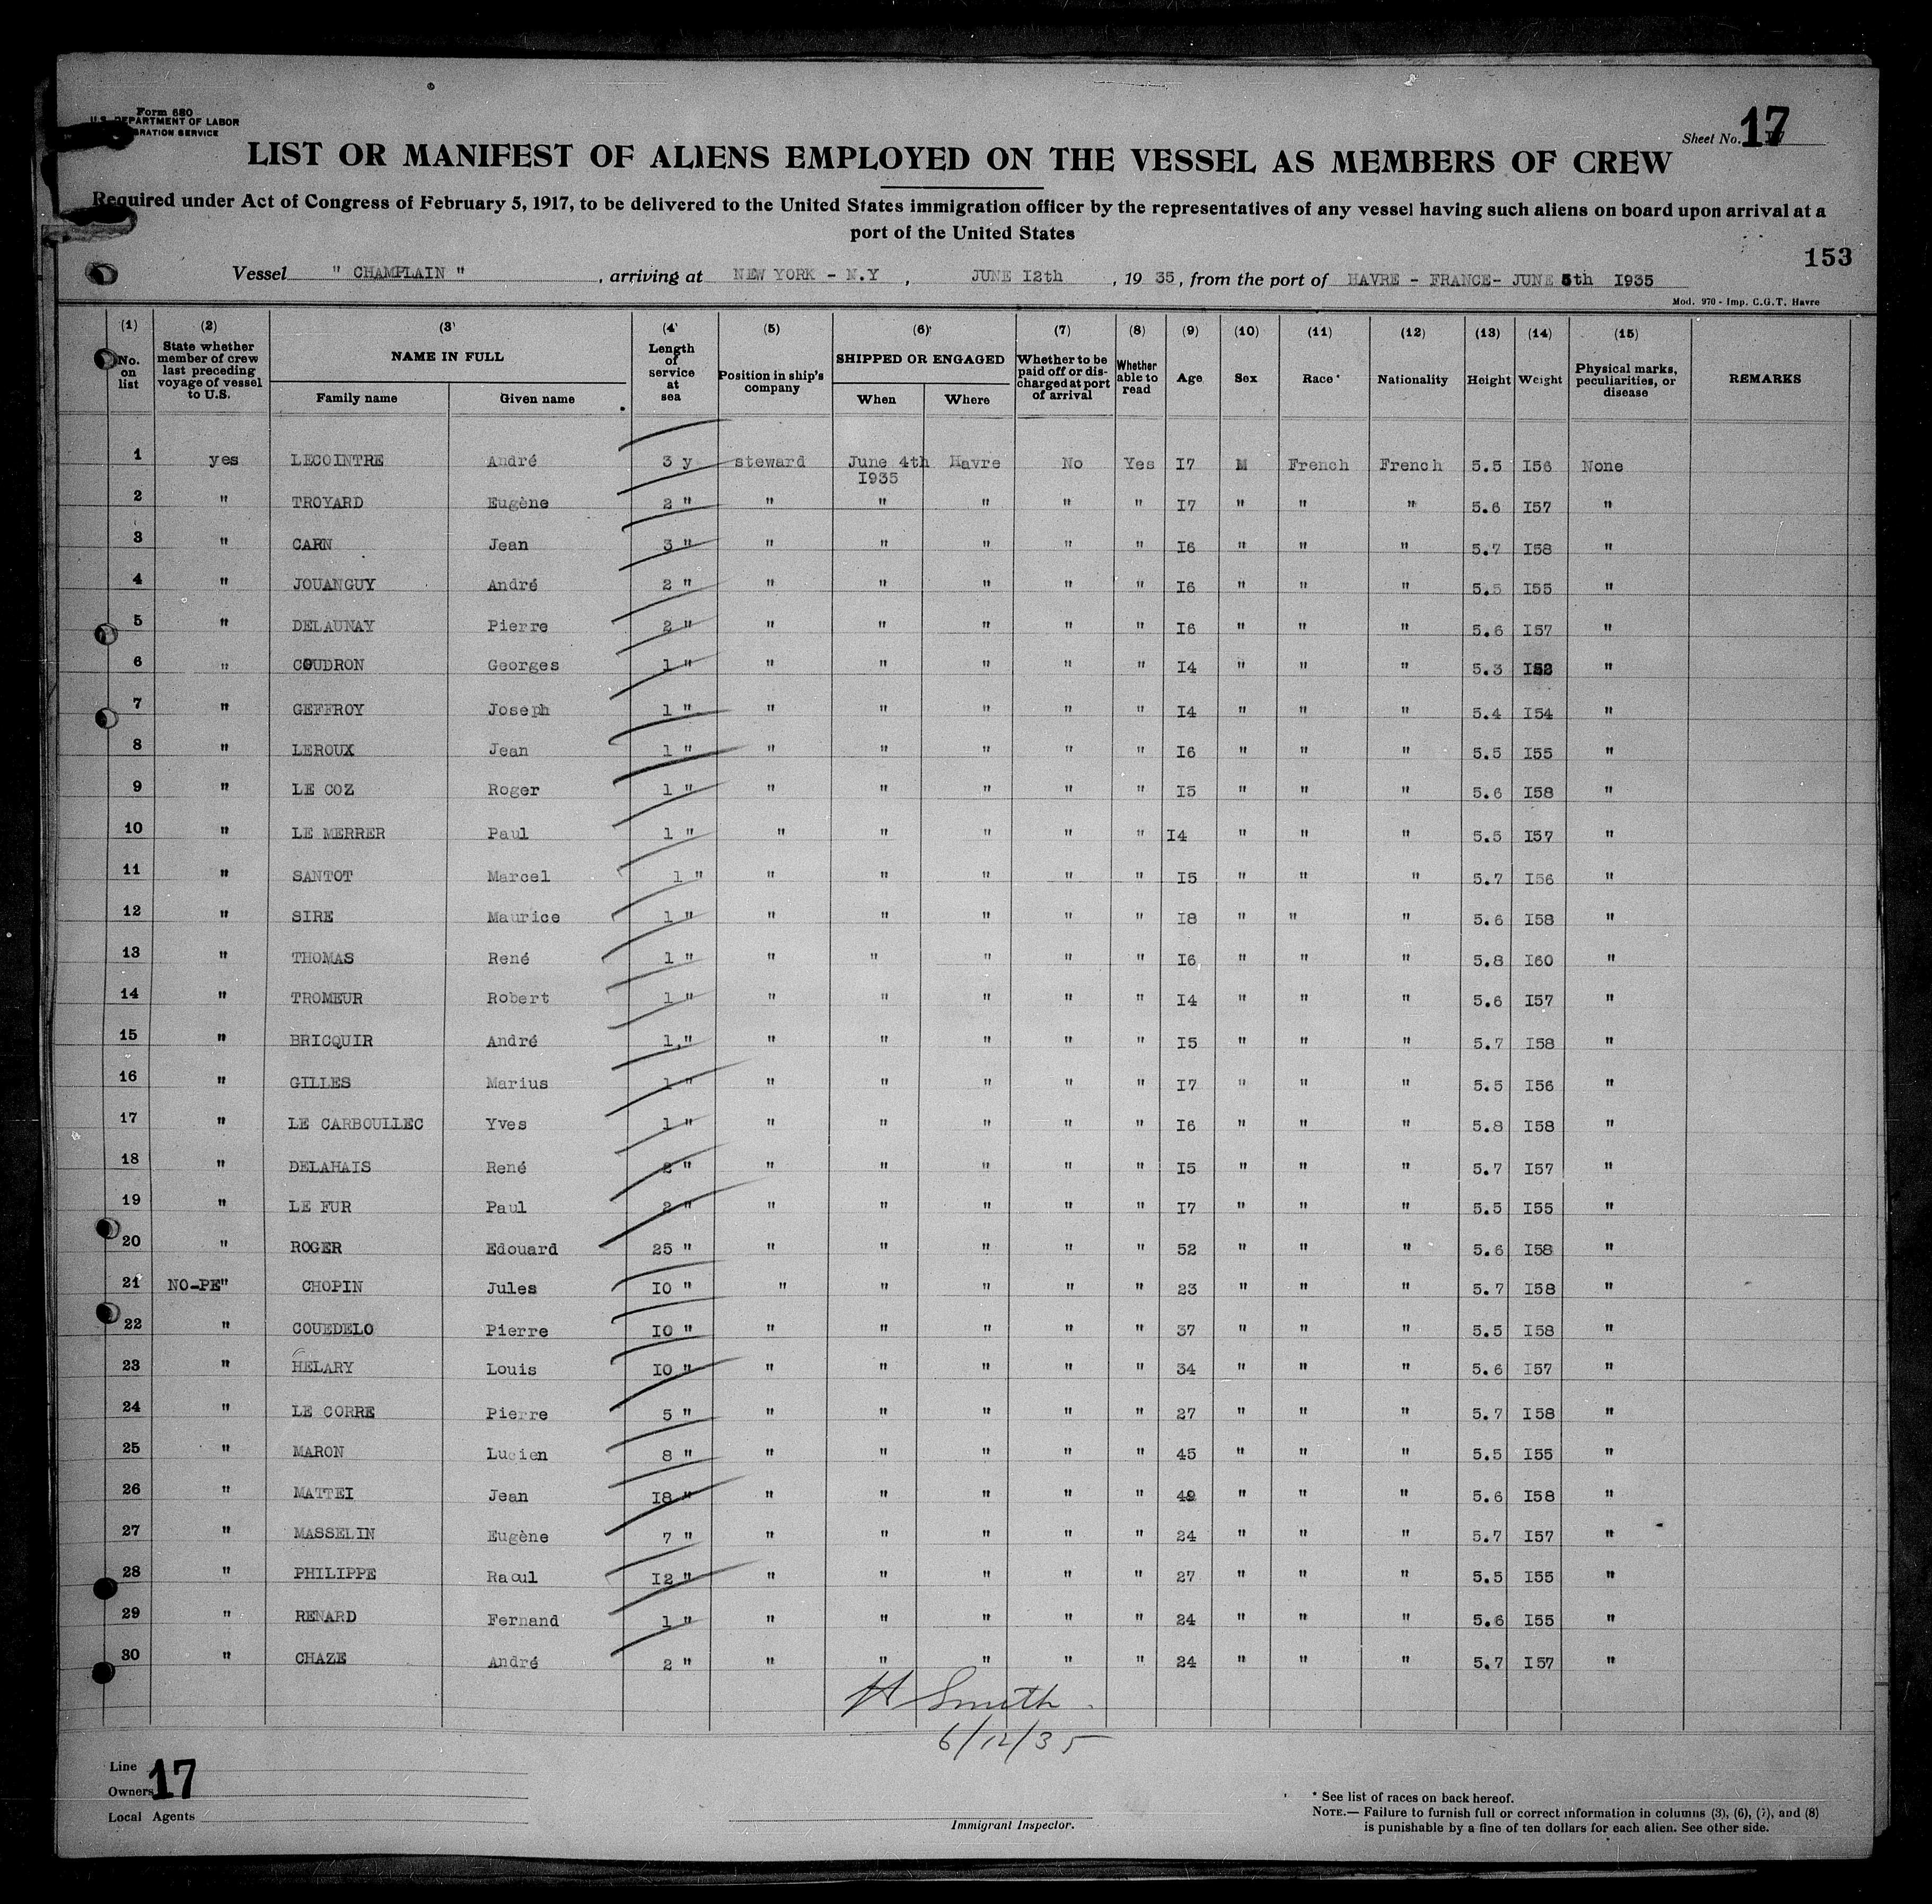 Form 680
U.S. DEPARTMENT OF LABOR
IMMIGRATION SERVICE
Sheet No. 17
LIST OR MANIFEST OF ALIENS EMPLOYED ON THE VESSEL AS MEMBERS OF CREW
Required under Act of Congress of February 5, 1917, to be delivered to the United States immigration officer by the representatives of any vessel having such aliens on board upon arrival at a
port of the United States
153
Vessel " CHAMPLAIN " , arriving at NEW YORK - N.Y , JUNE I2th , 19 35, from the port of HAVRE - FRANCE- JUNE 5th I935
Mod. 970 - Imp. C.G.T. Havre
(1) No. on list (2) State whether member of crew last preceding voyage of vessel to U.S. (3) NAME IN FULL Family name Given name (4) Length of service at sea (5) Position in ship's company (6) SHIPPED OR ENGAGED When Where (7) Whether to be paid off or discharged at port of arrival (8) Whether able to read (9) Age (10) Sex (11) Race* (12) Nationality (13) Height (14) Weight (15) Physical marks, peculiarities, or disease REMARKS
1 yes LECOINTRE André 3 y steward June 4th I935 Havre No Yes I7 M French French 5.5 I56 None
2 " TROYARD Eugène 2 " " " " " " I7 " " " 5.6 I57 "
3 " CARN Jean 3 " " " " " " I6 " " " 5.7 I58 "
4 " JOUANGUY André 2 " " " " " " I6 " " " 5.5 I55 "
5 " DELAUNAY Pierre 2 " " " " " " I6 " " " 5.6 I57 "
6 " COUDRON Georges 1 " " " " " " I4 " " " 5.3 I52 "
7 " GEFFROY Joseph 1 " " " " " " I4 " " " 5.4 I54 "
8 " LEROUX Jean 1 " " " " " " I6 " " " 5.5 I55 "
9 " LE COZ Roger 1 " " " " " " I5 " " " 5.6 I58 "
10 " LE MERRER Paul 1 " " " " " " I4 " " " 5.5 I57 "
11 " SANTOT Marcel 1 " " " " " " I5 " " " 5.7 I56 "
12 " SIRE Maurice 1 " " " " " " I8 " " " 5.6 I58 "
13 " THOMAS René 1 " " " " " " I6 " " " 5.8 I60 "
14 " TROMEUR Robert 1 " " " " " " I4 " " " 5.6 I57 "
15 " BRICQUIR André 1 " " " " " " I5 " " " 5.7 I58 "
16 " GILLES Marius 1 " " " " " " I7 " " " 5.5 I56 "
17 " LE CARBOULLEC Yves 1 " " " " " " I6 " " " 5.8 I58 "
18 " DELAHAIS René 2 " " " " " " I5 " " " 5.7 I57 "
19 " LE FUR Paul 2 " " " " " " I7 " " " 5.5 I55 "
20 " ROGER Edouard 25 " " " " " " 52 " " " 5.6 I58 "
21 NO-PE" CHOPIN Jules I0 " " " " " " 23 " " " 5.7 I58 "
22 " COUEDELO Pierre I0 " " " " " " 37 " " " 5.5 I58 "
23 " HELARY Louis I0 " " " " " " 34 " " " 5.6 I57 "
24 " LE CORRE Pierre 5 " " " " " " 27 " " " 5.7 I58 "
25 " MARON Lucien 8 " " " " " " 45 " " " 5.5 I55 "
26 " MATTEI Jean I8 " " " " " " " " " 5.6 I58 "
27 " MASSELIN Eugène 7 " " " " " " 24 " " " 5.7 I57 "
28 " PHILIPPE Raoul I2 " " " " " " 27 " " " 5.5 I55 "
29 " RENARD Fernand 1 " " " " " " 24 " " " 5.6 I55 "
30 " CHAZE André 2 " " " " " " 24 " " " 5.7 I57 "
H Smith
6/12/35
Line
Owners 17
Local Agents
Immigrant Inspector.
* See list of races on back hereof.
NOTE.— Failure to furnish full or correct information in columns (3), (6), (7), and (8)
is punishable by a fine of ten dollars for each alien. See other side.